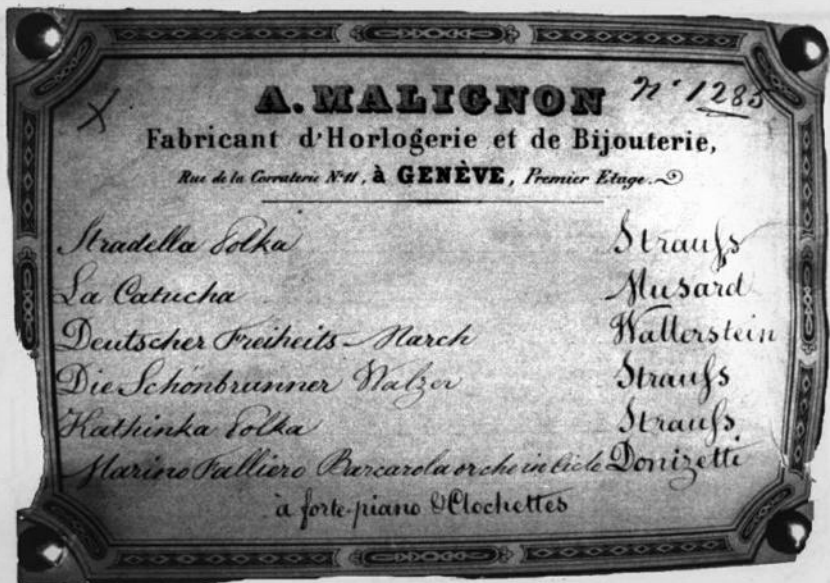 A. MALIGNON
n° 1285
Fabricant d'Horlogerie et de Bijouterie,
Rue de la Corraterie N° 11, à GENÈVE, Premier Etage.
Stradella Polka Straufs
La Catucha Musard
Deutscher Freiheits-March Wallerstein
Die Schönbrunner Walzer Straufs
Kathinka Polka Straufs
Marino Falliero Barcarola or che in cielo Donizetti
à forte-piano & Clochettes